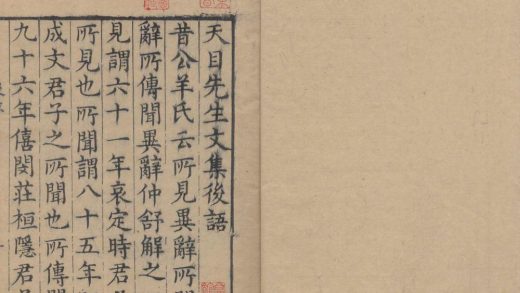 天目先生文集後語
昔公羊氏云所見異辭所聞
辭所傳聞異辭仲舒解之
見謂六十一年哀定時君
所見也所聞謂八十五年
成文君子之所聞也所傳聞
九十六年僖閔莊桓隱君